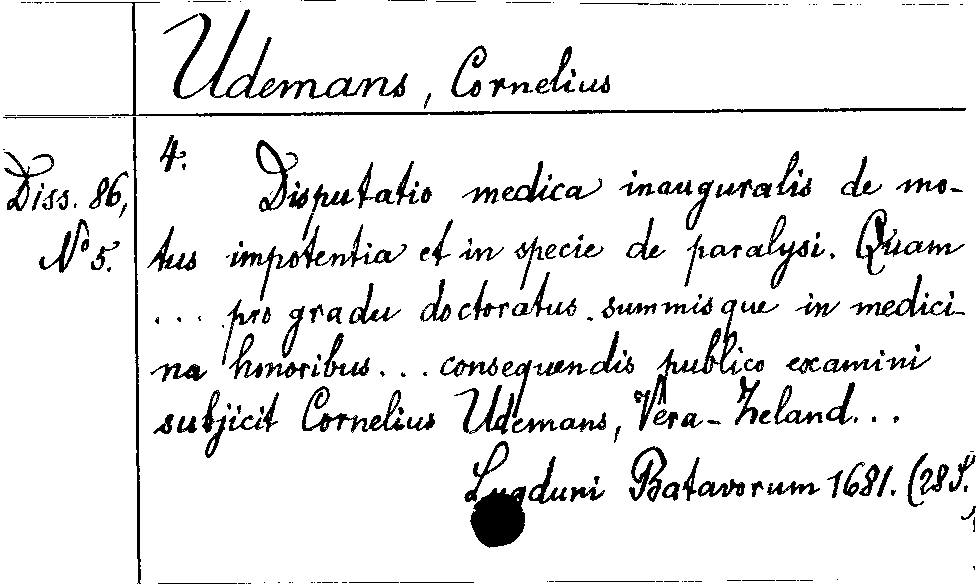 Udemans, Cornelius
Diss. 86,
No 5.
4.
Disputatio medica inauguralis de mo-
tus impotentia et in specie de paralysi. Quam
... pro gradu doctoratus summisque in medici-
na honoribus... consequendis publico examini
subjicit Cornelius Udemans, Vera-Zeland...
Lugduni Batavorum 1681. (28 S.